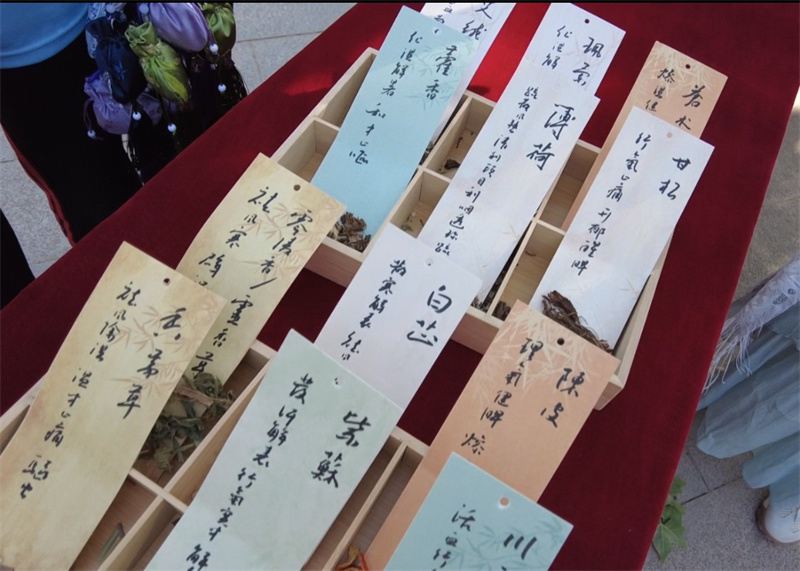 藿香
化湿解暑
和中止呕
佩兰
化湿解
薄荷
疏散风热清利头目利咽透疹
苍术
燥湿健
甘松
行氣止痛
开郁醒脾
零陵香/
靈香草
祛风寒
白芷
散寒解表
香茅草
祛风除湿
温中止痛
驅虫
紫蘇
發汗解表
行氣寬中
解
陳皮
理氣健脾
燥
川
活血行